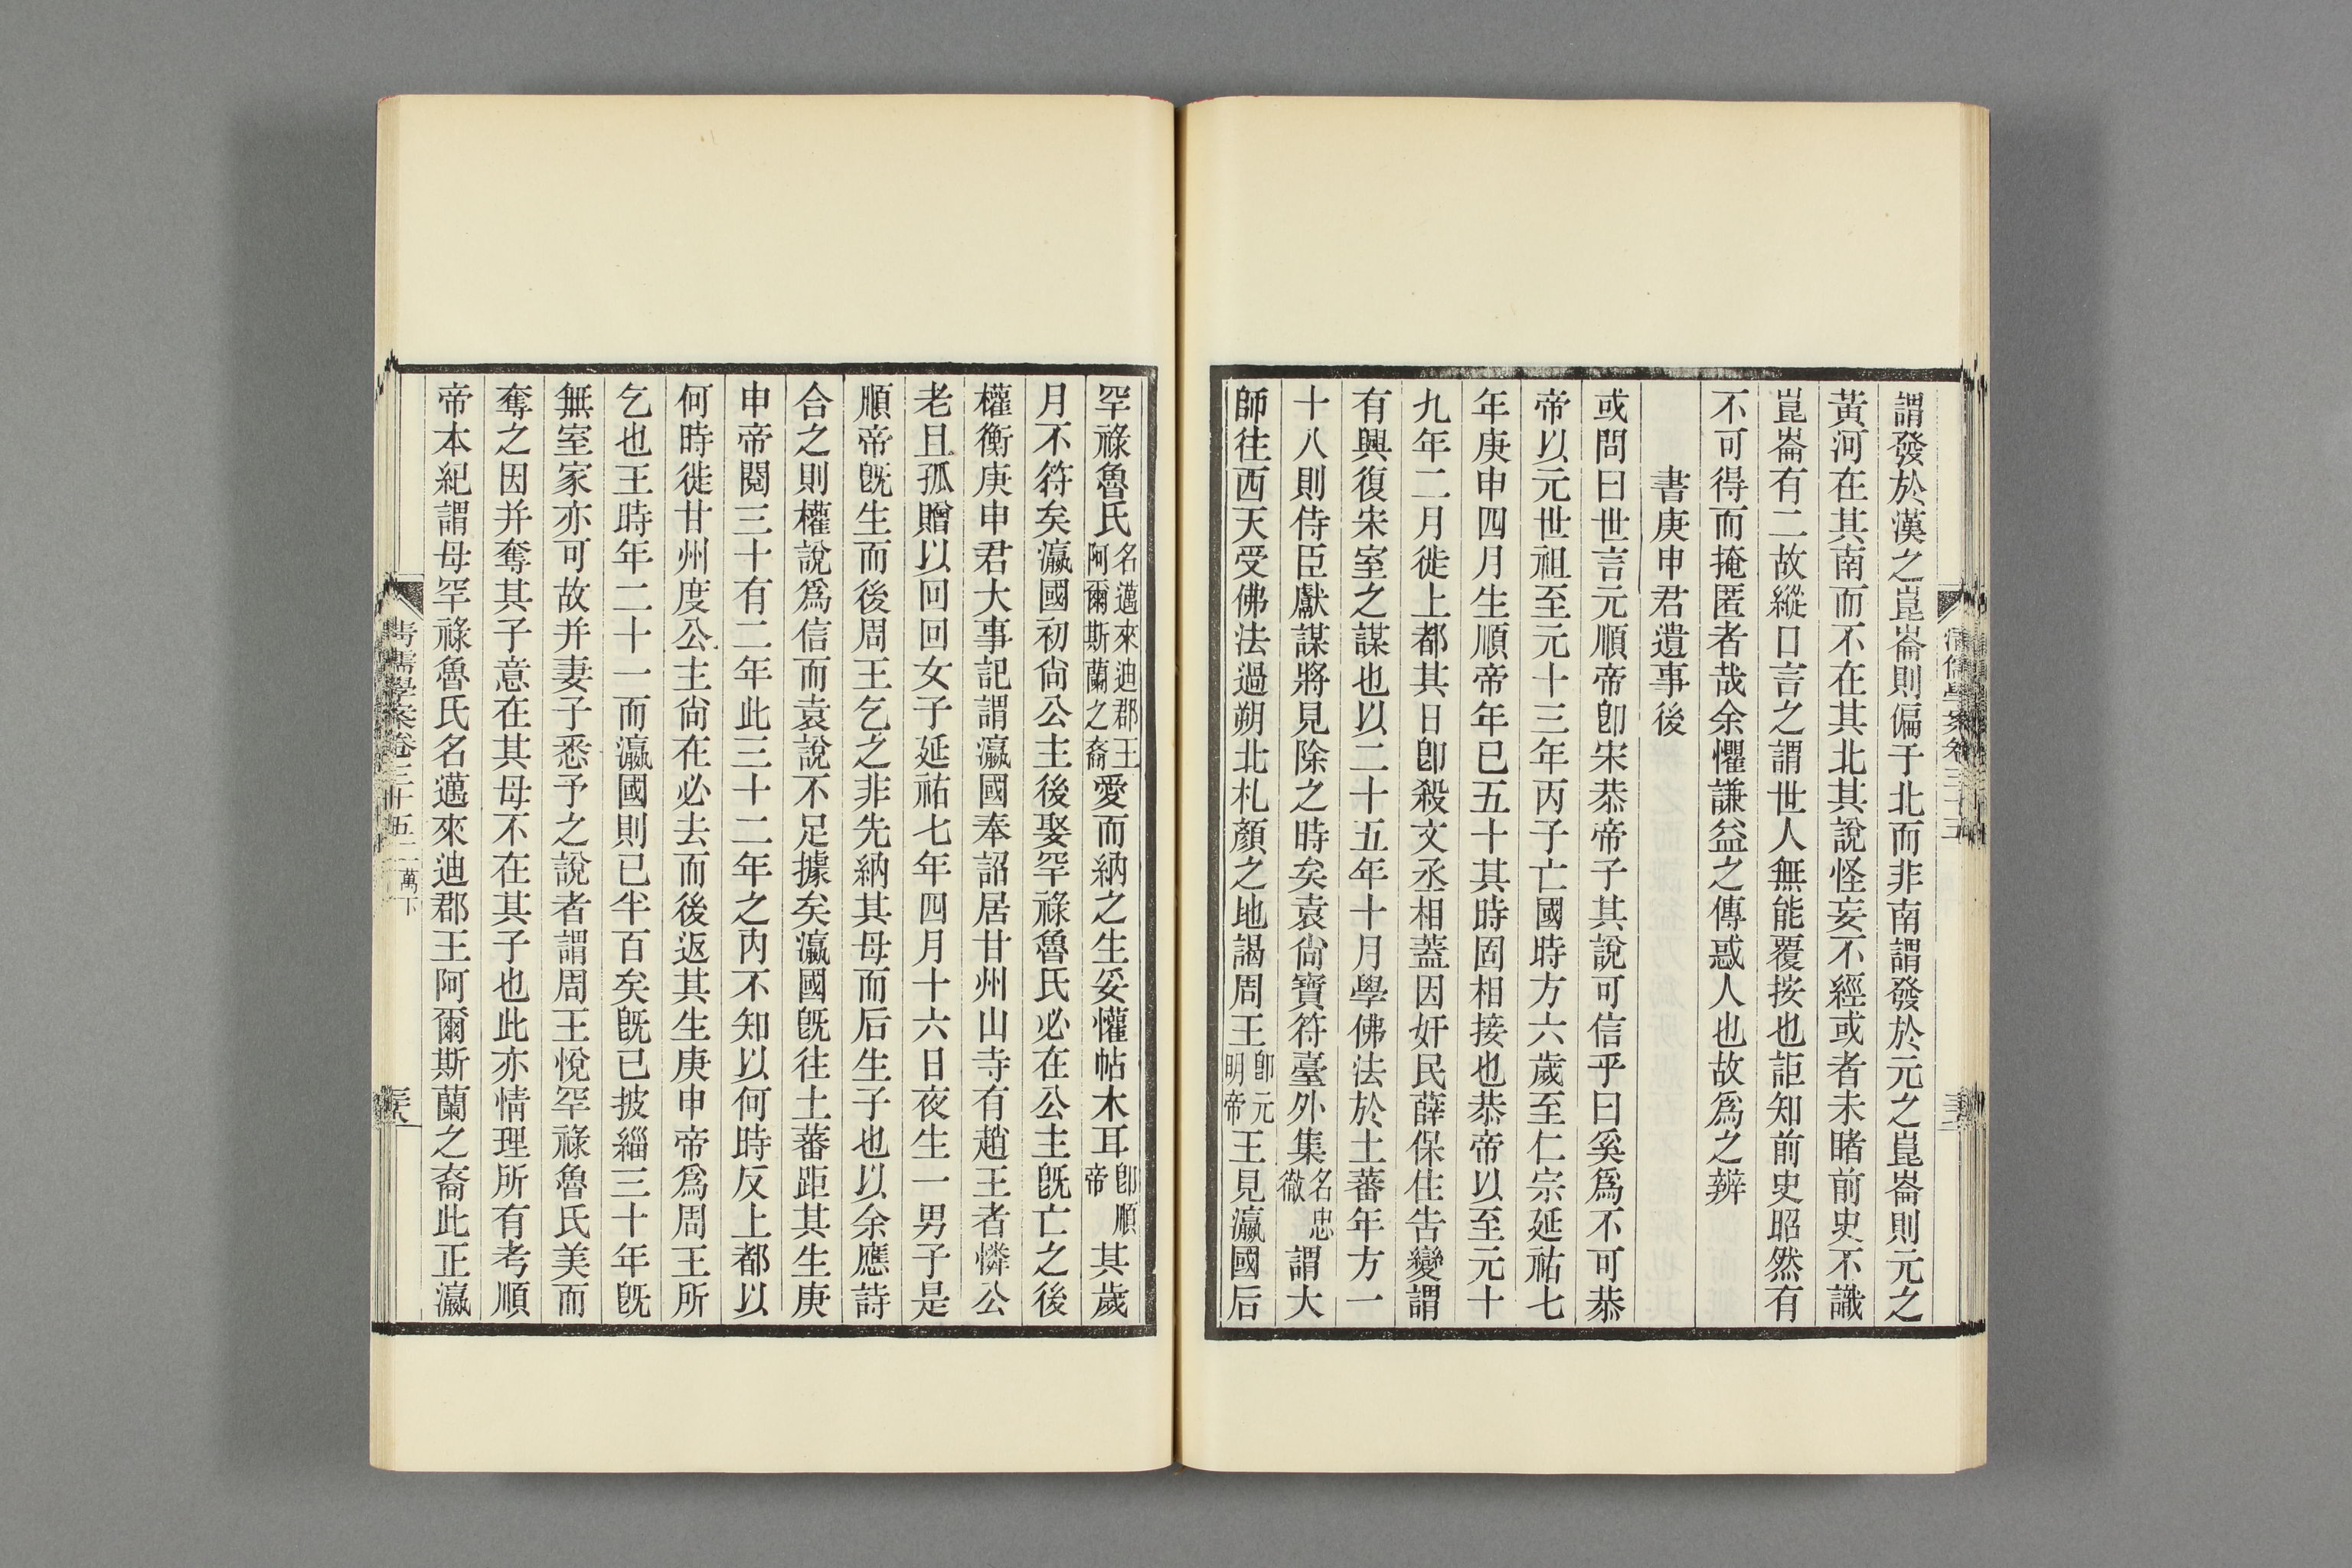 謂發於漢之崑崙則偏于北而非南謂發於元之崑崙則元之
黃河在其南而不在其北其說怪妄不經或者未睹前史不識
崑崙有二故縱口言之謂世人無能覆按也詎知前史昭然有
不可得而掩匿者哉余懼謙益之傳惑人也故爲之辨
書庚申君遺事後
或問曰世言元順帝卽宋恭帝子其說可信乎曰奚爲不可恭
帝以元世祖至元十三年丙子亡國時方六歲至仁宗延祐七
年庚申四月生順帝年已五十其時固相接也恭帝以至元十
九年二月徙上都其日卽殺文丞相蓋因奸民薛保住告變謂
有興復宋室之謀也以二十五年十月學佛法於土蕃年方一
十八則侍臣獻謀將見除之時矣袁尙寶符臺外集名忠徹謂大
師往西天受佛法過朔北札顏之地謁周王卽元明帝王見瀛國后
罕祿魯氏名邁來迪郡王阿爾斯蘭之裔愛而納之生妥懽帖木耳卽順帝其歲
月不符矣瀛國初尙公主後娶罕祿魯氏必在公主旣亡之後
權衡庚申君大事記謂瀛國奉詔居甘州山寺有趙王者憐公
老且孤贈以回回女子延祐七年四月十六日夜生一男子是
順帝旣生而後周王乞之非先納其母而后生子也以余應詩
合之則權說爲信而袁說不足據矣瀛國旣往土蕃距其生庚
申帝閱三十有二年此三十二年之內不知以何時反上都以
何時徙甘州度公主尙在必去而後返其生庚申帝爲周王所
乞也王時年二十一而瀛國則已半百矣旣已披緇三十年旣
無室家亦可故并妻子悉予之說者謂周王悅罕祿魯氏美而
奪之因并奪其子意在其母不在其子也此亦情理所有考順
帝本紀謂母罕祿魯氏名邁來迪郡王阿爾斯蘭之裔此正瀛
清儒學案卷三十五二萬下